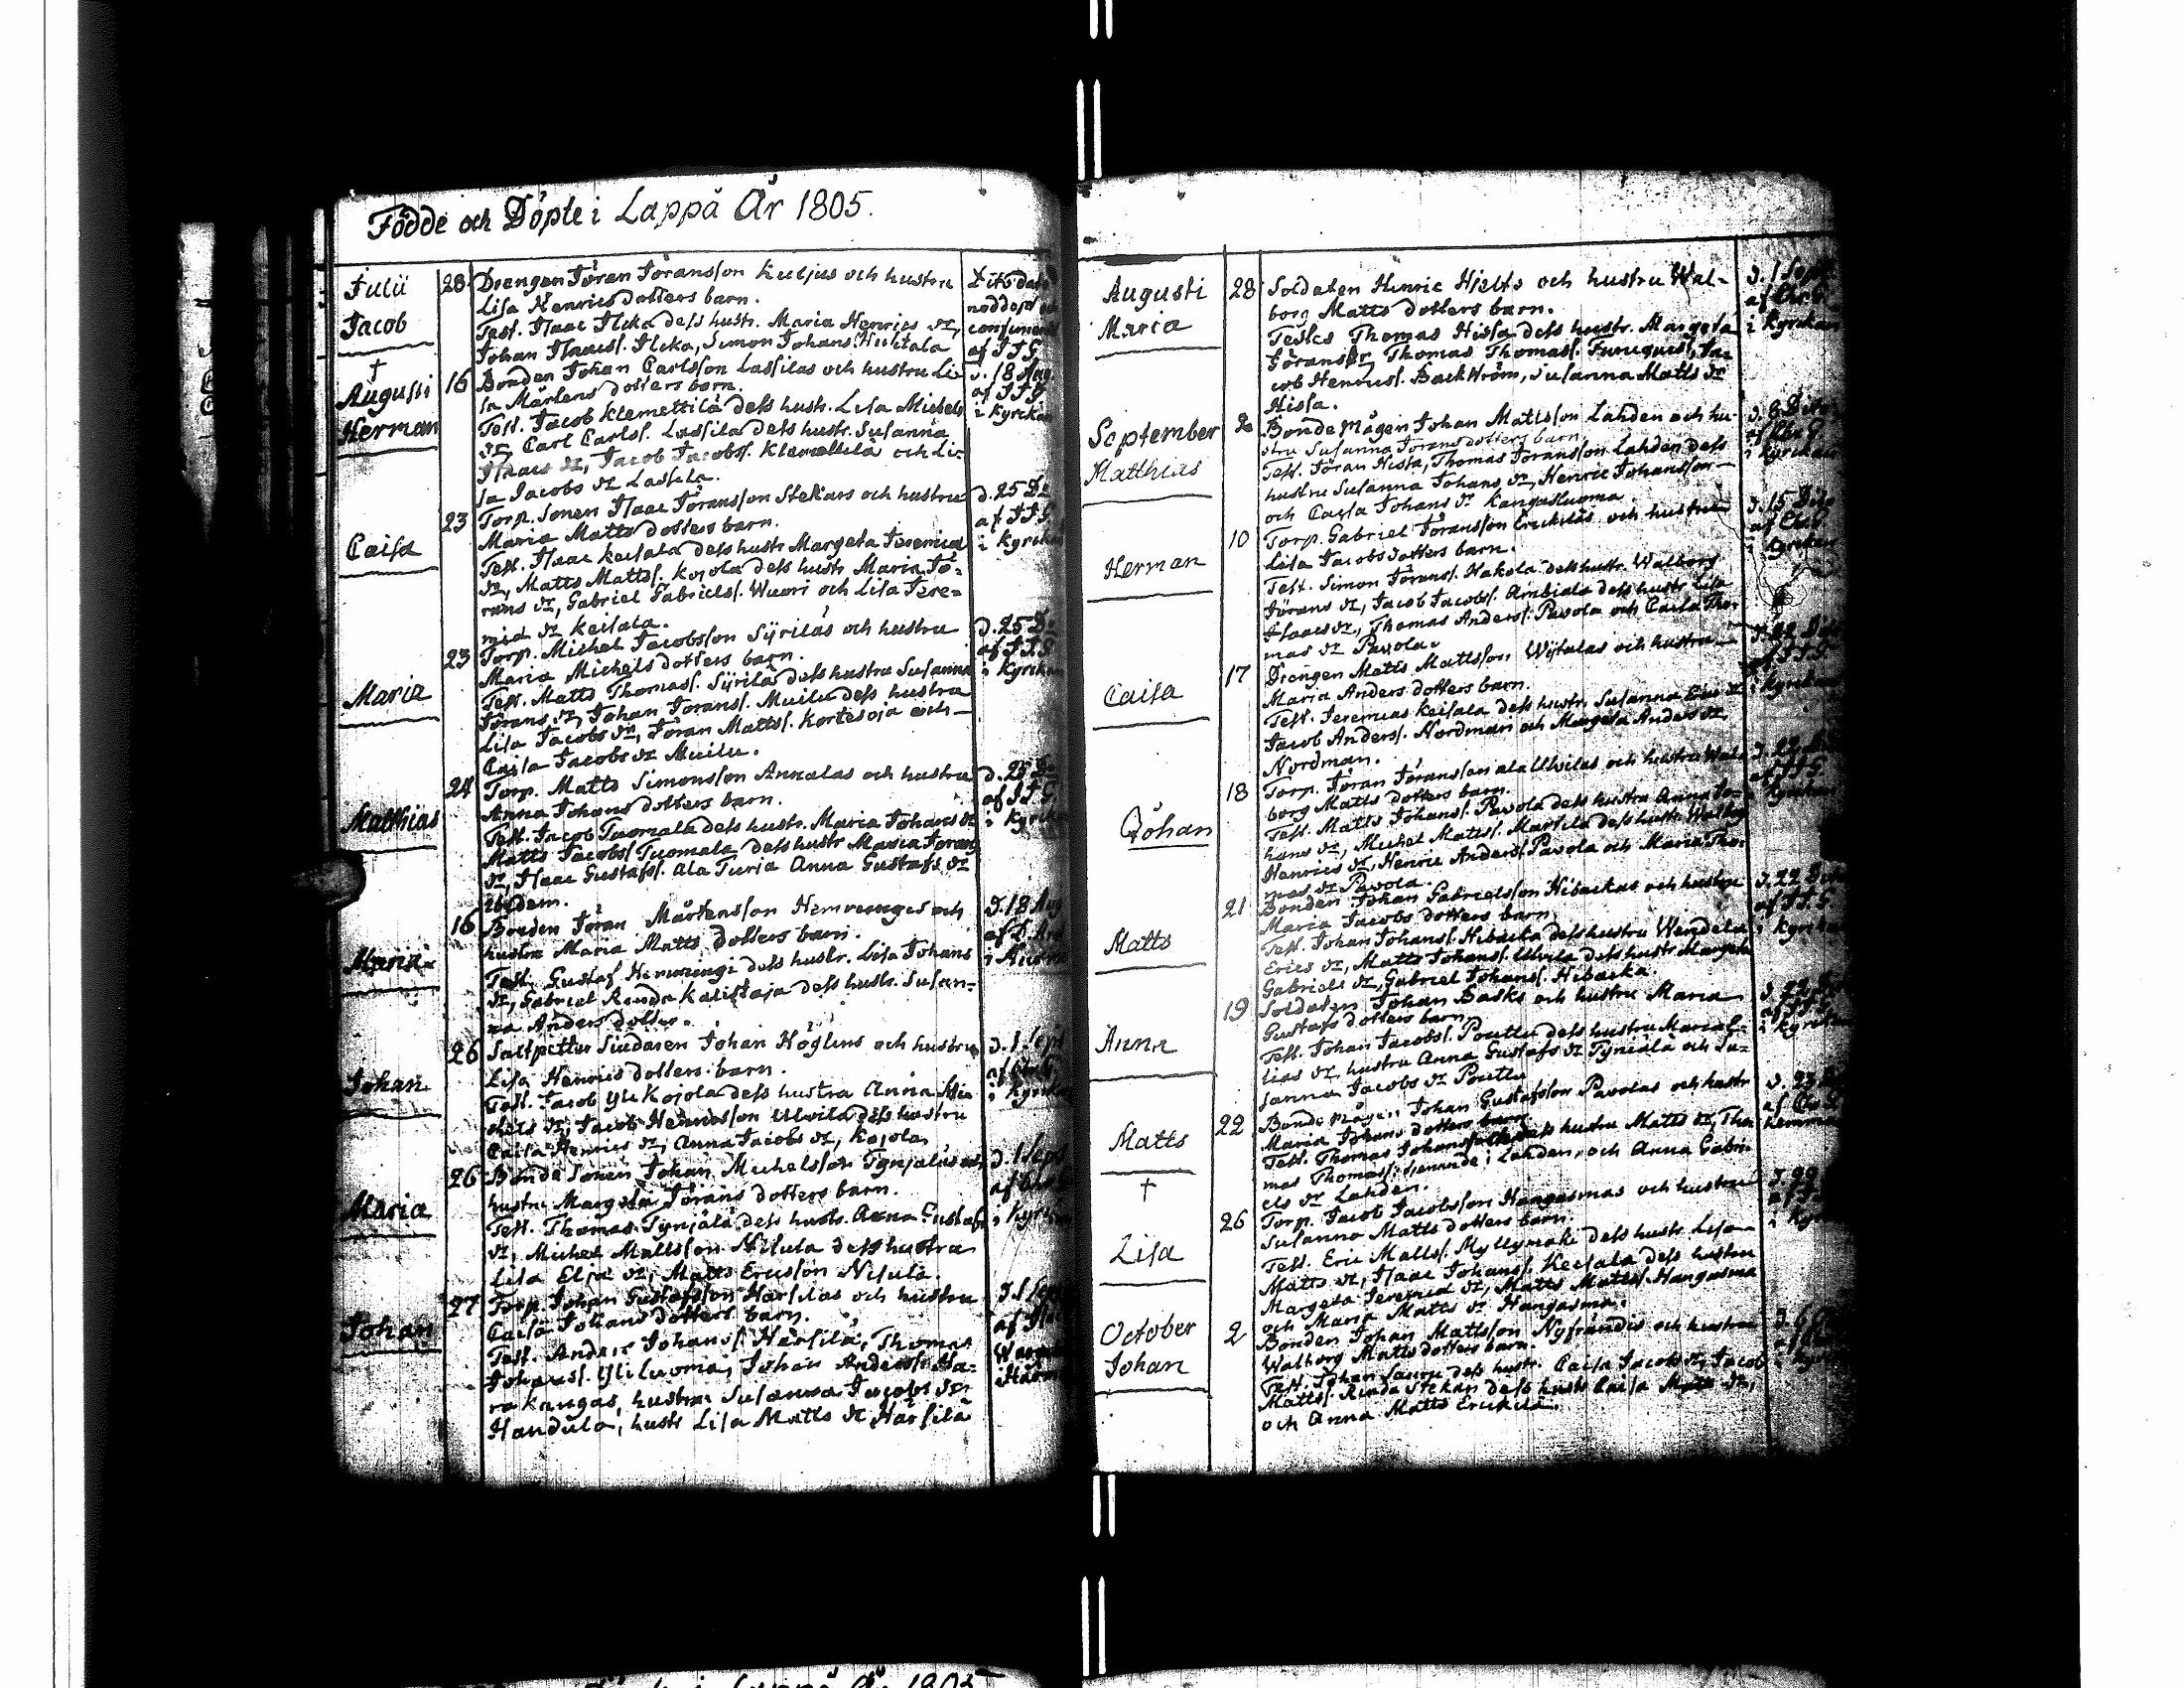 Födde och Döpte i Lappå År 1805.
Julii
Jacob
†
28
Drengen Jöran Jöransson Kuljus och hustru
Lisa Henrics dotters barn.
Test. Isaac Ilcka dess hustr. Maria Henrics dr,
Johan Isaacss. Ilcka, Simon Johans. Huhtala
Dito dato
nöddöpt
af J.J.G.
Augusti
Herman
16
Bonden Johan Carlsson Lassilas och hustru Li-
sa Mårtens dotters barn.
Test. Jacob Klemettilä dess hustr. Lisa Michels
dr, Carl Carlss. Lassila dess hustr. Susanna
Isaacs dr, Jacob Jacobs. Klemettilä och Li-
sa Jacobs dr Lassila.
d. 18 Aug.
af J.J.G.
i Kyrckan
Caisa
23
Torp. Sonen Isaac Jöransson Stekars och hustru
Maria Matts dotters barn.
Test. Isaac Keisala dess hustr Margeta Jeremiæ
dr, Matts Mattss. Kojola dess hustr Maria Jö-
rans dr, Gabriel Gabrielss. Wuori och Lisa Jere-
miæ dr Keisala.
d. 25 Do
af J.J.G.
i Kyrckan
Maria
23
Torp. Michel Jacobsson Syriläs och hustru
Maria Michels dotters barn.
Test. Matts Thomass. Syrilä dess hustru Susanna
Jörans dr, Johan Jörans. Muilu dess hustru
Lisa Jacobs dr, Jöran Mattss. Kortesoja och
Caisa Jacobs dr Muilu.
d. 25 Do
af J.J.G.
i Kyrckan
Matthias
24
Torp. Matts Simonsson Annalas och hustru
Anna Johans dotters barn.
Test. Jacob Tuomala dess hustr. Maria Johans dr
Matts Jacobs. Tuomala dess hustr Maria Jörans
dr, Isaac Gustafss. Ala Turja Anna Gustafs dr
ibidem.
d. 25 Do
af J.J.G.
i Kyrckan
Maria
16
Bonden Jöran Mårtensson Hemminges och
hustru Maria Matts dotters barn.
Test. Gustaf Hemmingi dess hustr. Lisa Johans
dr, Gabriel Kallistaja dess hustr. Susan-
na Anders dotter.
d. 18 Aug
Johan
26
Saltpetter Siudaren Johan Höglins och hustru
Lisa Henrics dotters barn.
Test. Jacob Yli Kojola dess hustru Anna Mi-
chels dr, Jacob Henricsson Ulvila dess hustru
Caisa Henrics dr, Anna Jacobs dr, Kojola.
d. 1 Sept
i Kyrckan
Maria
26
Bonde Sonen Johan Michelsson Tynjäläs och
hustru Margeta Jörans dotters barn.
Test. Thomas Tynjälä dess hustr. Anna Gustafs
dr, Michel Mattsson Nisula dess hustru
Lisa Eliæ dr, Matts Ericsson Nisula.
d. 1 Sept
i Kyrckan
Johan
27
Torp. Johan Gustafsson Harsilas och hustru
Caisa Johans dotters barn.
Test. Anders Johans. Harsilä, Thomas
Johanss. Yliluoma, Johan Anderss. Ha-
ra kangas, hustru Susanna Jacobs dr
Handula, hustr Lisa Matts dr Harsilä
d. 1 Sept
Augusti
Maria
28
Soldaten Henric Hjelts och hustru Wal-
borg Matts dotters barn.
Testes Thomas Hissa dess hustr. Margeta
Jörans dr, Thomas Thomass. Ja-
cob Henricss. Backström, Susanna Matts dr
Hissa.
d. 1 Sept.
i Kyrckan
September
Matthias
2
Bonde Mågen Johan Mattsson Lahden och hu-
stru Susanna Jörans dotters barn.
Test. Jöran Hissa, Thomas Jöransson Lahden dess
hustru Susanna Johans dr, Henric Johansson
och Caisa Johans dr Kangasluoma.
d. 8 Dito
i Kyrckan
Herman
10
Torp. Gabriel Jöransson Erickiläs och hustru
Lisa Jacobs dotters barn.
Test. Simon Jörans. Hakola dess hustr. Walborg
Jörans dr, Jacob Jacobs. Ambiala dess hustr Lisa
Isaacs dr, Thomas Anderss. Pavola och Caisa Tho-
mas dr Pavola.
d. 15 Dito
i Kyrckan
Caisa
17
Drengen Matts Mattsson Wijtalas och hustru
Maria Anders dotters barn.
Test. Jeremias Keisala dess hustr. Susanna Eric dr
Jacob Anderss. Nordman och Margeta Anders dr
Nordman.
af J.J.G.
i Kyrckan
Johan
18
Torp. Jöran Jöransson ala Ulvilas och hustru Wal-
borg Matts dotters barn.
Test. Matts Johans. Pavola dess hustru Anna Jo-
hans dr, Michel Mattss. Martila dess hustr Walborg
Henrics dr, Henric Anderss. Pavola och Maria Tho-
mas dr Pavola.
d. 22
af J.J.G.
i Kyrckan
Matts
21
Bonden Johan Gabrielsson Hibackas och hustru
Maria Jacobs dotters barn.
Test. Johan Johans. Hibacka dess hustru Wendela
Erics dr, Matts Johans. Ulvila dess hustr Margeta
Gabriels dr, Gabriel Johans. Hibacka.
d. 22 Dito
af J.J.G.
i Kyrckan
Anna
19
Soldaten Johan Basks och hustru Maria
Gustafs dotters barn.
Test. Johan Jacobs. Poutu dess hustru Maria E-
lias dr, hustru Anna Gustafs dr Tynjälä och Su-
sanna Jacobs dr Poutu
d. 22
af J.J.G.
i Kyrckan
Matts
†
22
Bonde Mågen Johan Gustafsson Pavolas och hustr
Maria Johans dotters barn.
Test. Thomas dess hustru Matts dr, Tho-
mas Thomass. tjenande i Lahden, och Anna Gabri-
els dr Lahden.
d. 23
hemma
Lisa
26
Torp. Jacob Jacobsson Hangasmas och hustru
Susanna Matts dotters barn.
Test. Eric Mattss. Myllymäki dess hustr. Lisa
Matts dr, Isaac Johans. Keisala dess hustru
Margeta Jeremiæ dr, Matts Mattss. Hangasma
och Maria Matts dr Hangasma.
d. 29
October
Johan
2
Bonden Johan Mattsson Nyfrändis och hustru
Walborg Matts dotters barn.
Test. Johan Sauru dess hustr. Caisa Jacobs dr, Jacob
Mattss. Rinda Stekari dess hustr Caisa Matts dr,
och Anna Matts Erickilä.
d. 6
År 1805